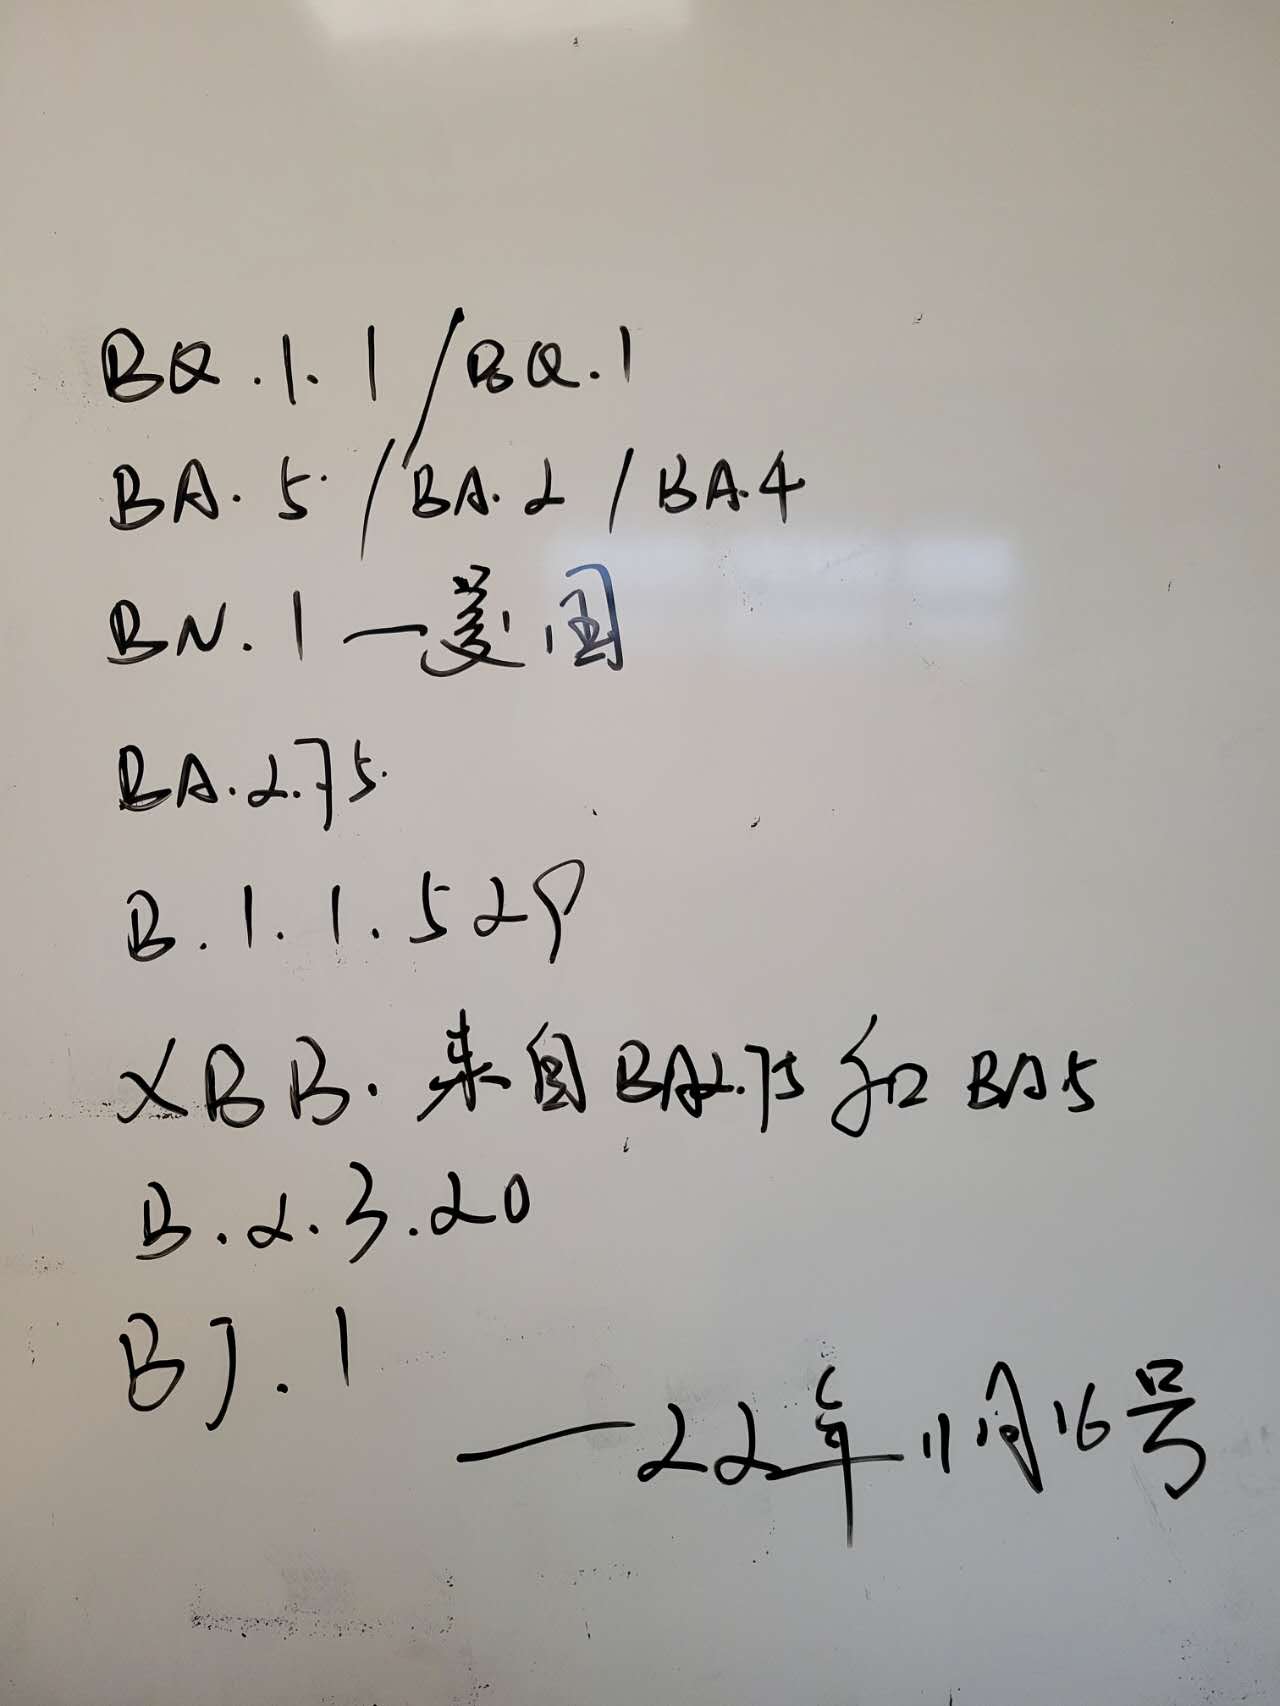 BQ.1.1/BQ.1
BA.5/BA.2/BA.4
BN.1—美国
BA.2.75.
B.1.1.529
XBB.来自BA2.75和BA5
B.2.3.20
BJ.1
—22年11月16号